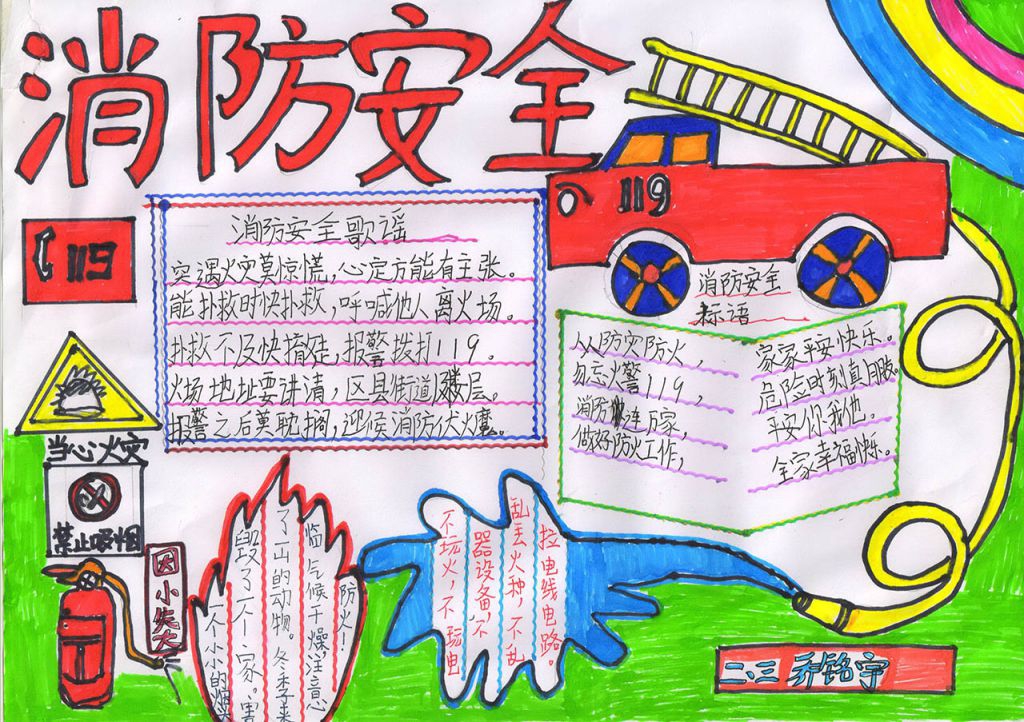 消防安全
119
119
消防安全歌谣
突遇火灾莫惊慌，心定方能有主张。
能扑救时快扑救，呼喊他人离火场。
扑救不及快撤走，报警拨打119。
火场地址要讲清，区县街道楼层。
报警之后莫耽搁，迎候消防伏火魔。
消防安全
标语
人人防灾防火，
家家平安快乐。
勿忘火警119，
危险时刻真
消防连万家，
平安你我他。
做好防火工作，
全家幸福快乐。
当心火灾
禁止吸烟
因小失大
一个小小的烟
毁了一个家。害
了山的动物。冬季来
临气候干燥，注意
防火！
不玩火，不玩电
器设备不
乱丢火种，不乱
拉电线电路。
二、三 乔铭宇